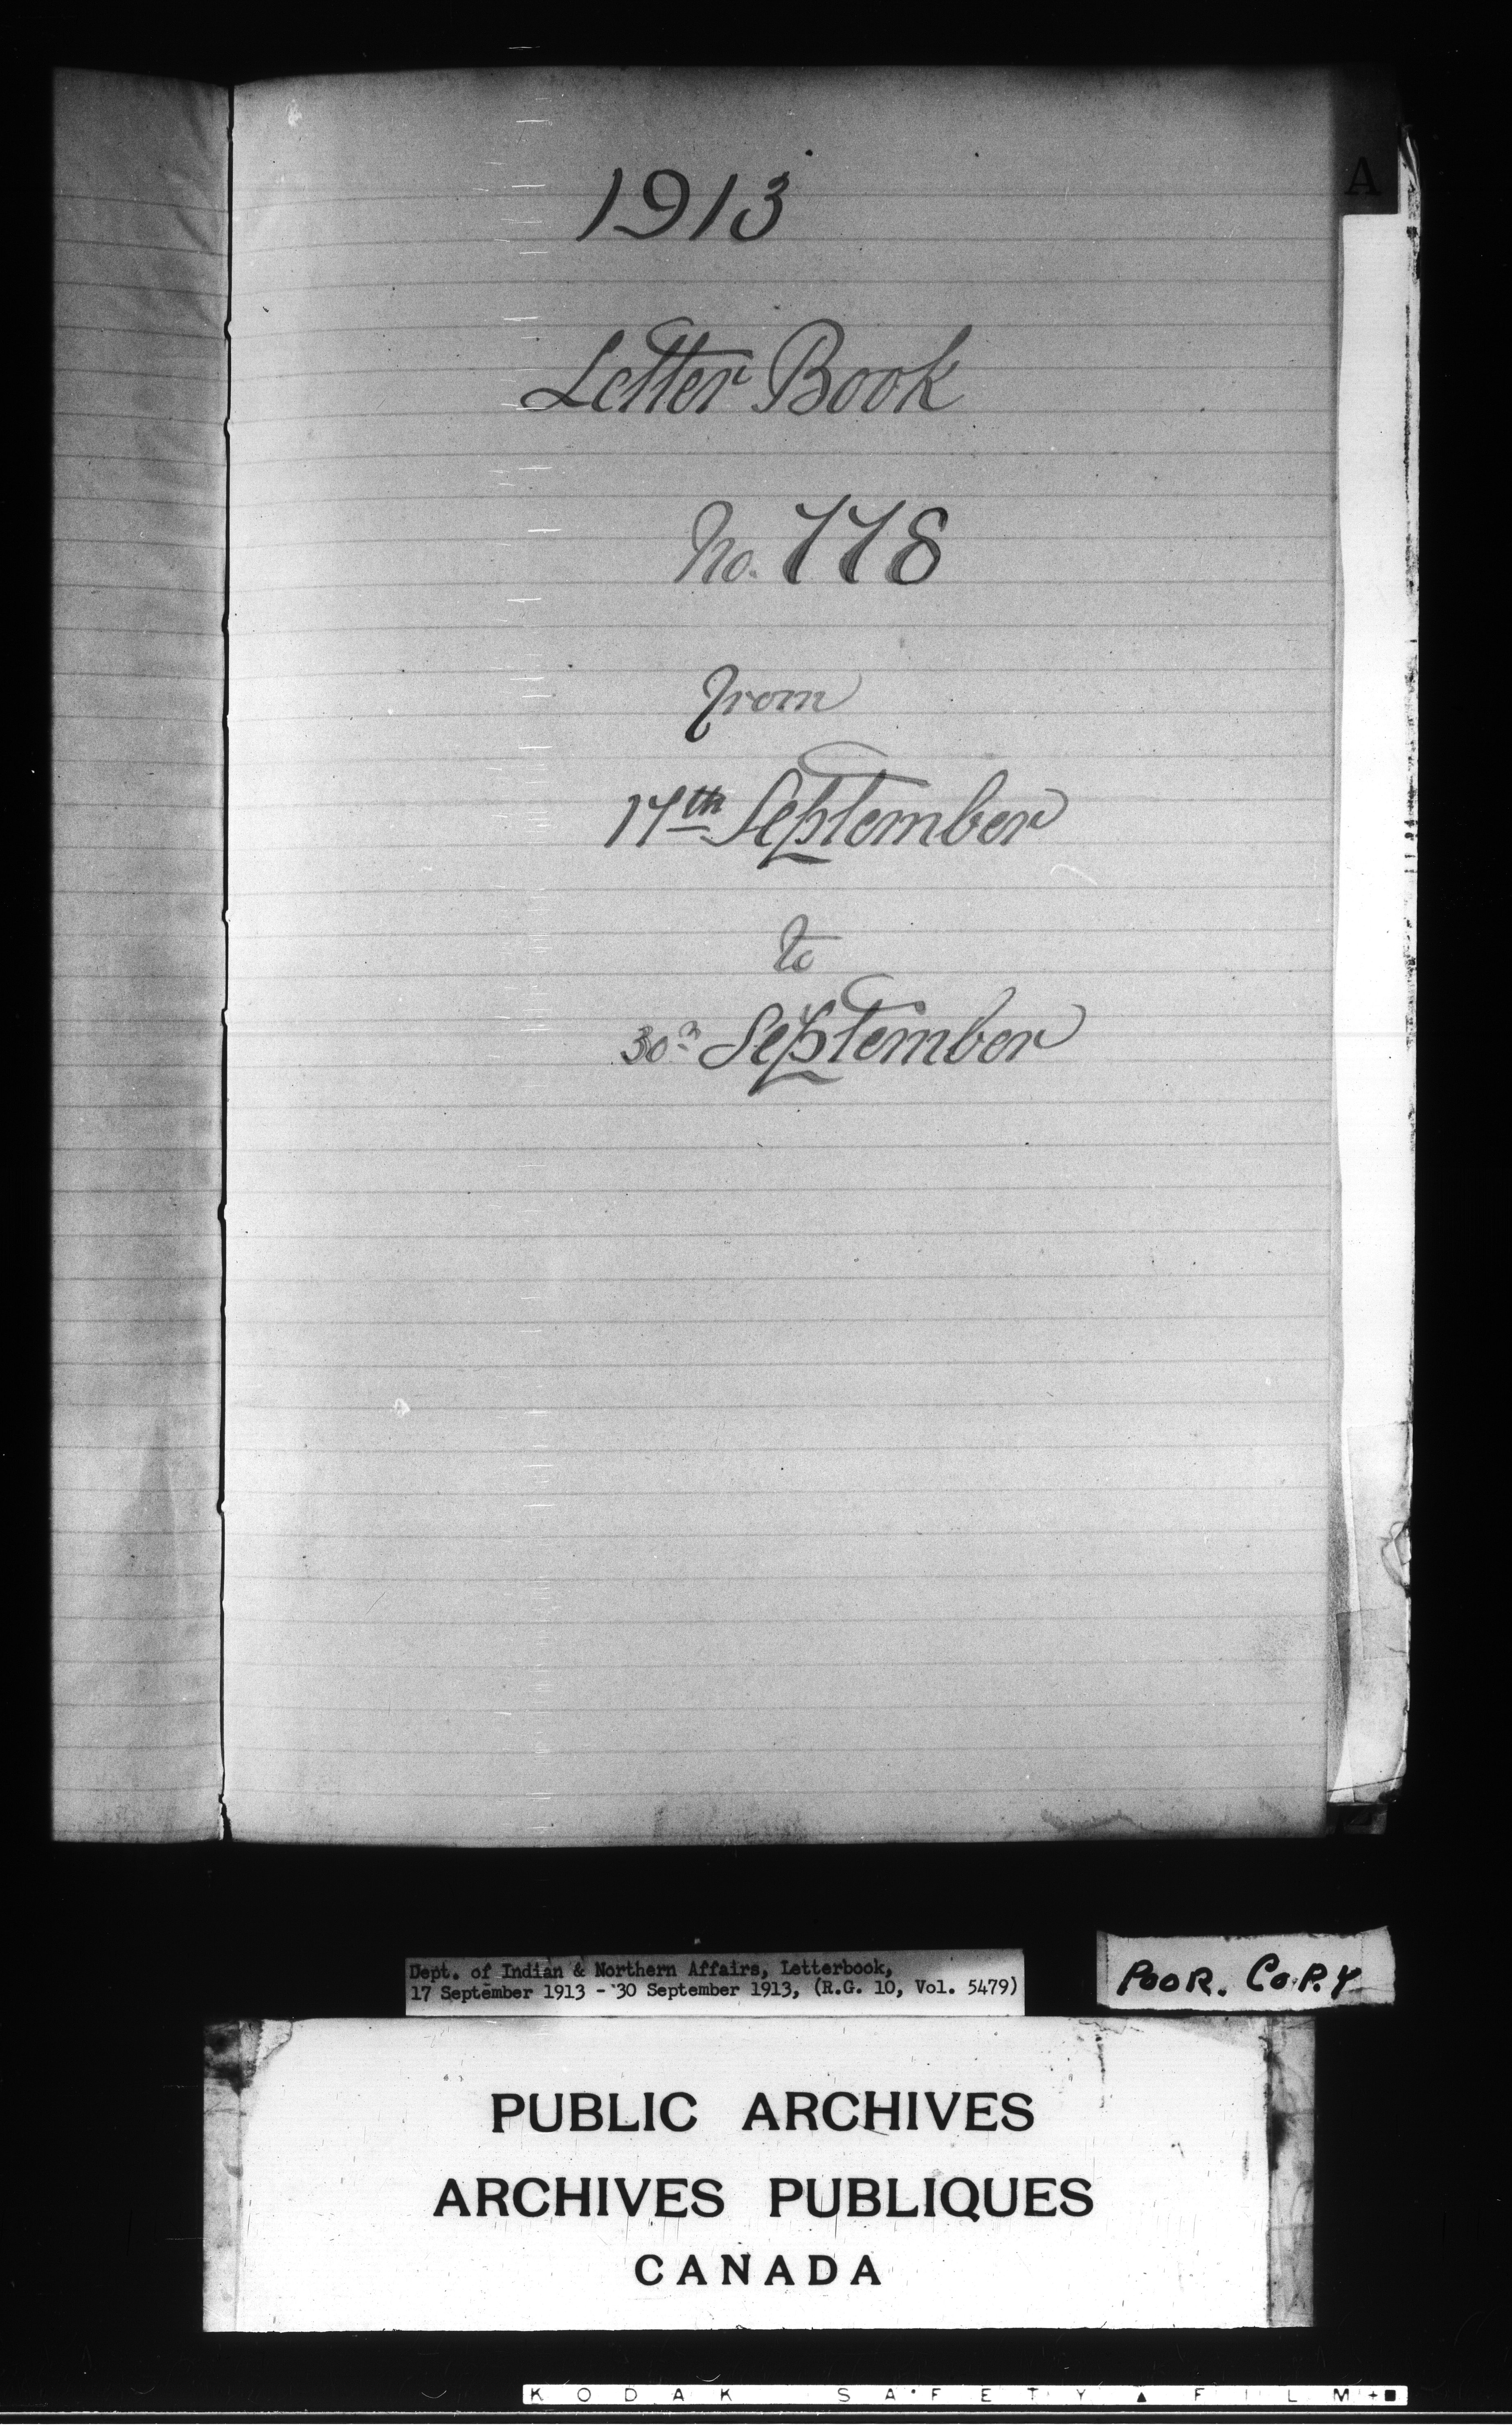 1913
A
Letter Book
No. 778
from
17th September
to
30th September
Dept. of Indian & Northern Affairs, Letterbook,
17 September 1913 - 30 September 1913, (R.G. 10, Vol. 5479)
POOR. COPY
PUBLIC ARCHIVES
ARCHIVES PUBLIQUES
CANADA
KODAK SAFETY ▲ FILM + ■